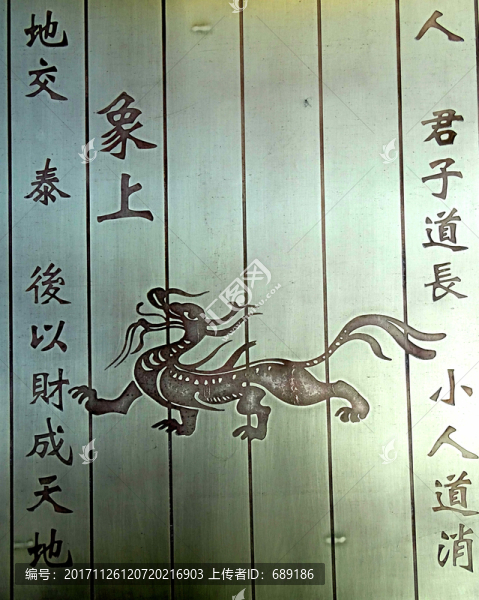 人 君子道長 小人道消
象上
地交 泰 後以財成天地
图网
编号：20171126120720216903 上传者ID：689186